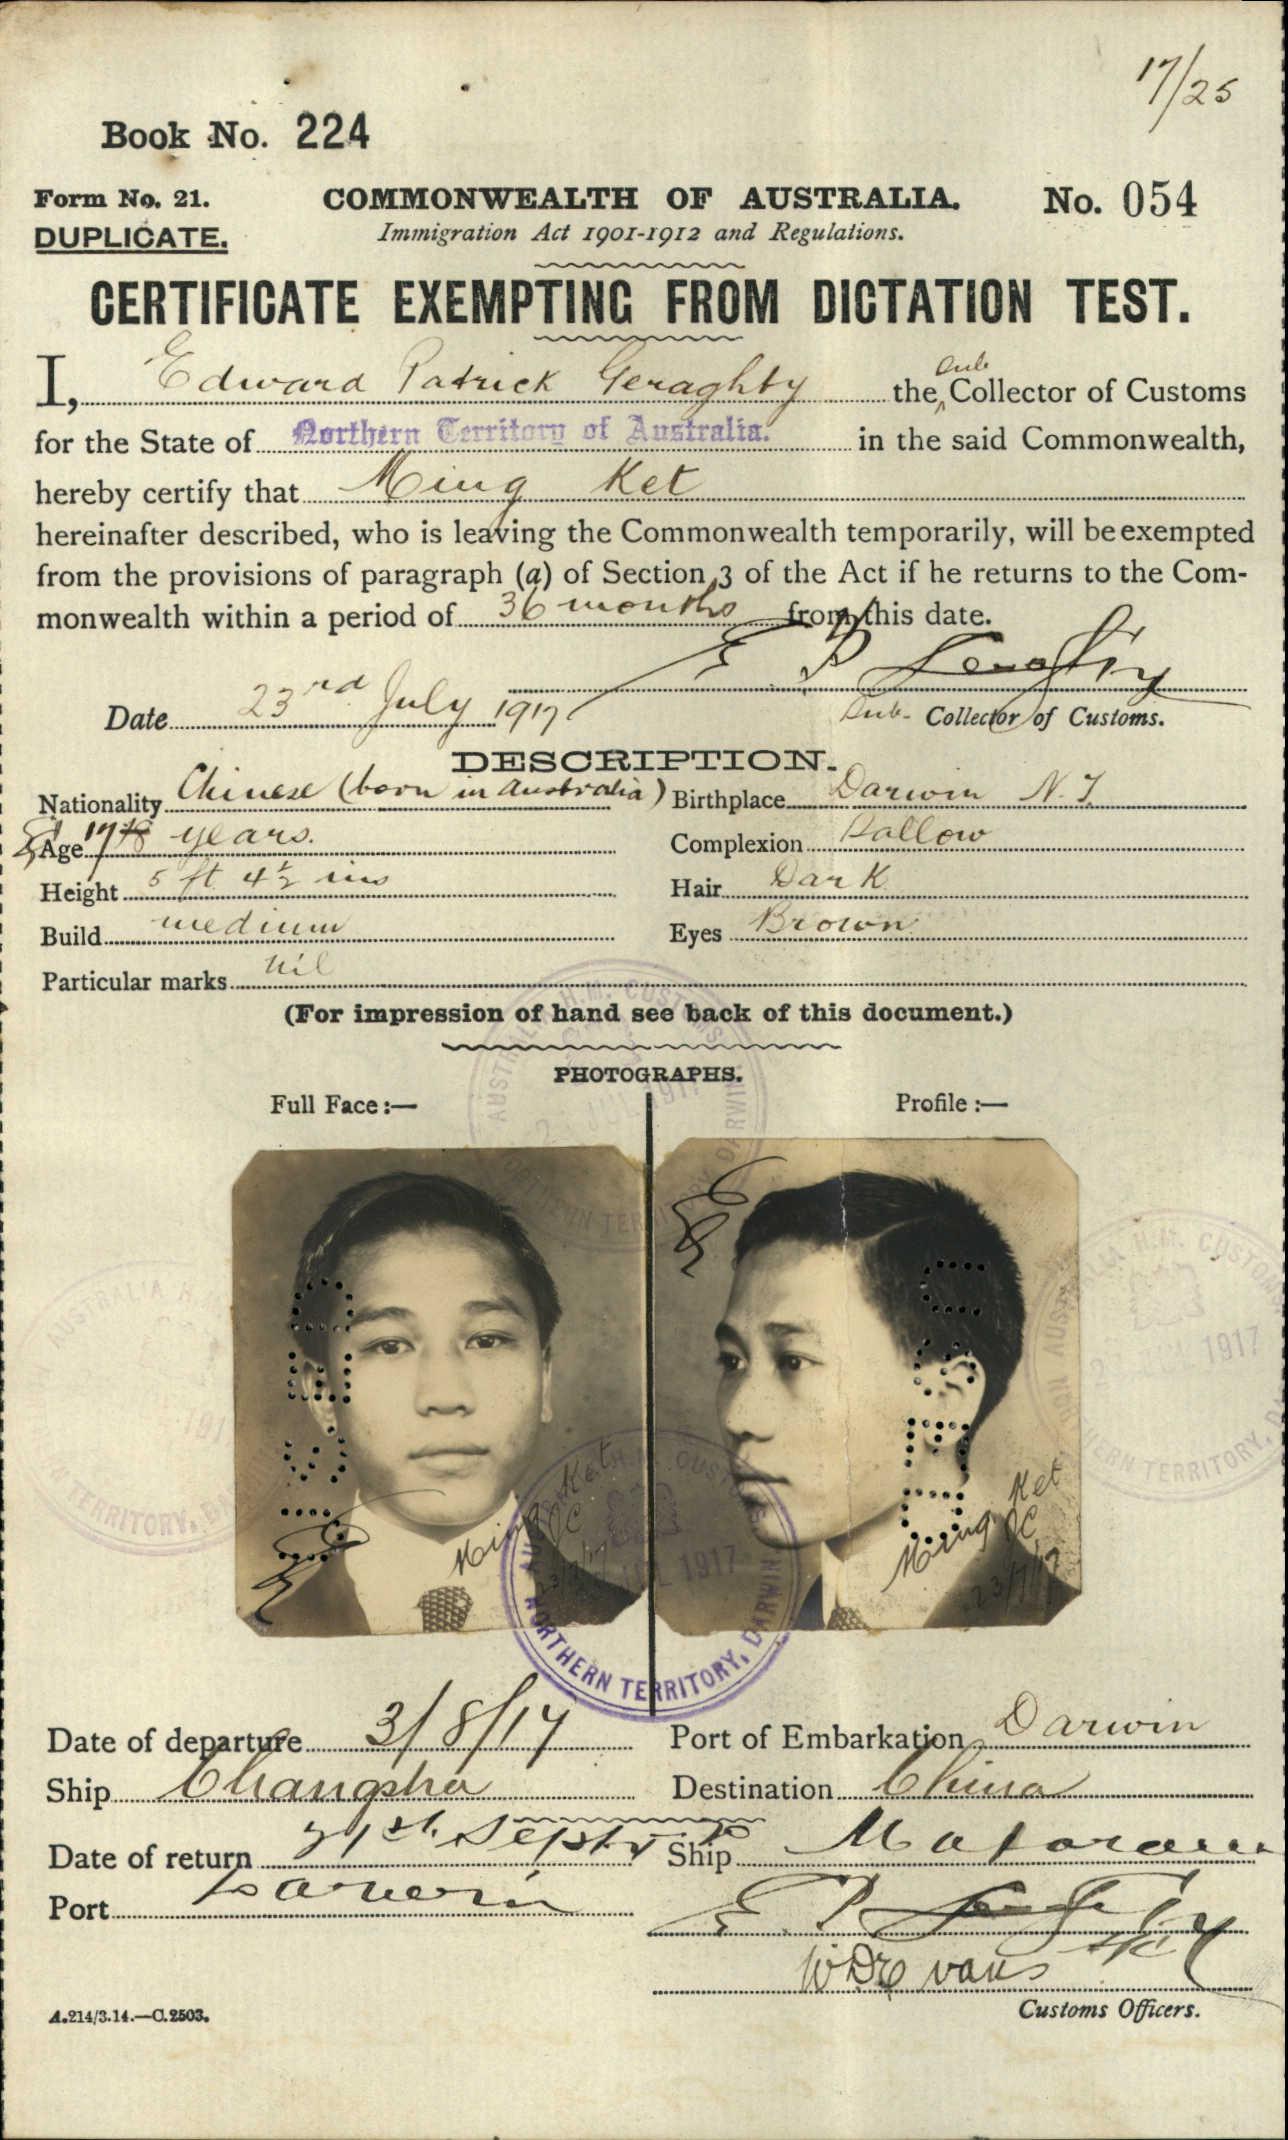 17/25
Book No. 224
Form No. 21. COMMONWEALTH OF AUSTRALIA. No. 054
DUPLICATE. Immigration Act 1901-1912 and Regulations.
CERTIFICATE EXEMPTING FROM DICTATION TEST.
I, Edward Patrick Geraghty the Sub Collector of Customs
for the State of Northern Territory of Australia. in the said Commonwealth,
hereby certify that Ming Ket
hereinafter described, who is leaving the Commonwealth temporarily, will be exempted
from the provisions of paragraph (a) of Section 3 of the Act if he returns to the Com-
monwealth within a period of 36 months from this date.
E P Geraghty
Date 23rd July 1917 Sub- Collector of Customs.
DESCRIPTION.
Nationality Chinese (born in Australia) Birthplace Darwin N.T.
Age 17 years. Complexion Sallow
Height 5 ft 4½ ins Hair Dark
Build medium Eyes Brown
Particular marks nil
(For impression of hand see back of this document.)
PHOTOGRAPHS.
Full Face:— Profile:—
AUSTRALIA H.M. CUSTOMS
NORTHERN TERRITORY, DARWIN
JUL 1917
CUSTOMS
Ming Ket
23/7/17
Ming Ket
23/7/17
USED
Date of departure 3/8/17 Port of Embarkation Darwin
Ship Changsha Destination China
Date of return 21st Sept Ship Mataram
Port Darwin E. P. Geraghty
W D Evans
A.214/3.14.—C.2503. Customs Officers.